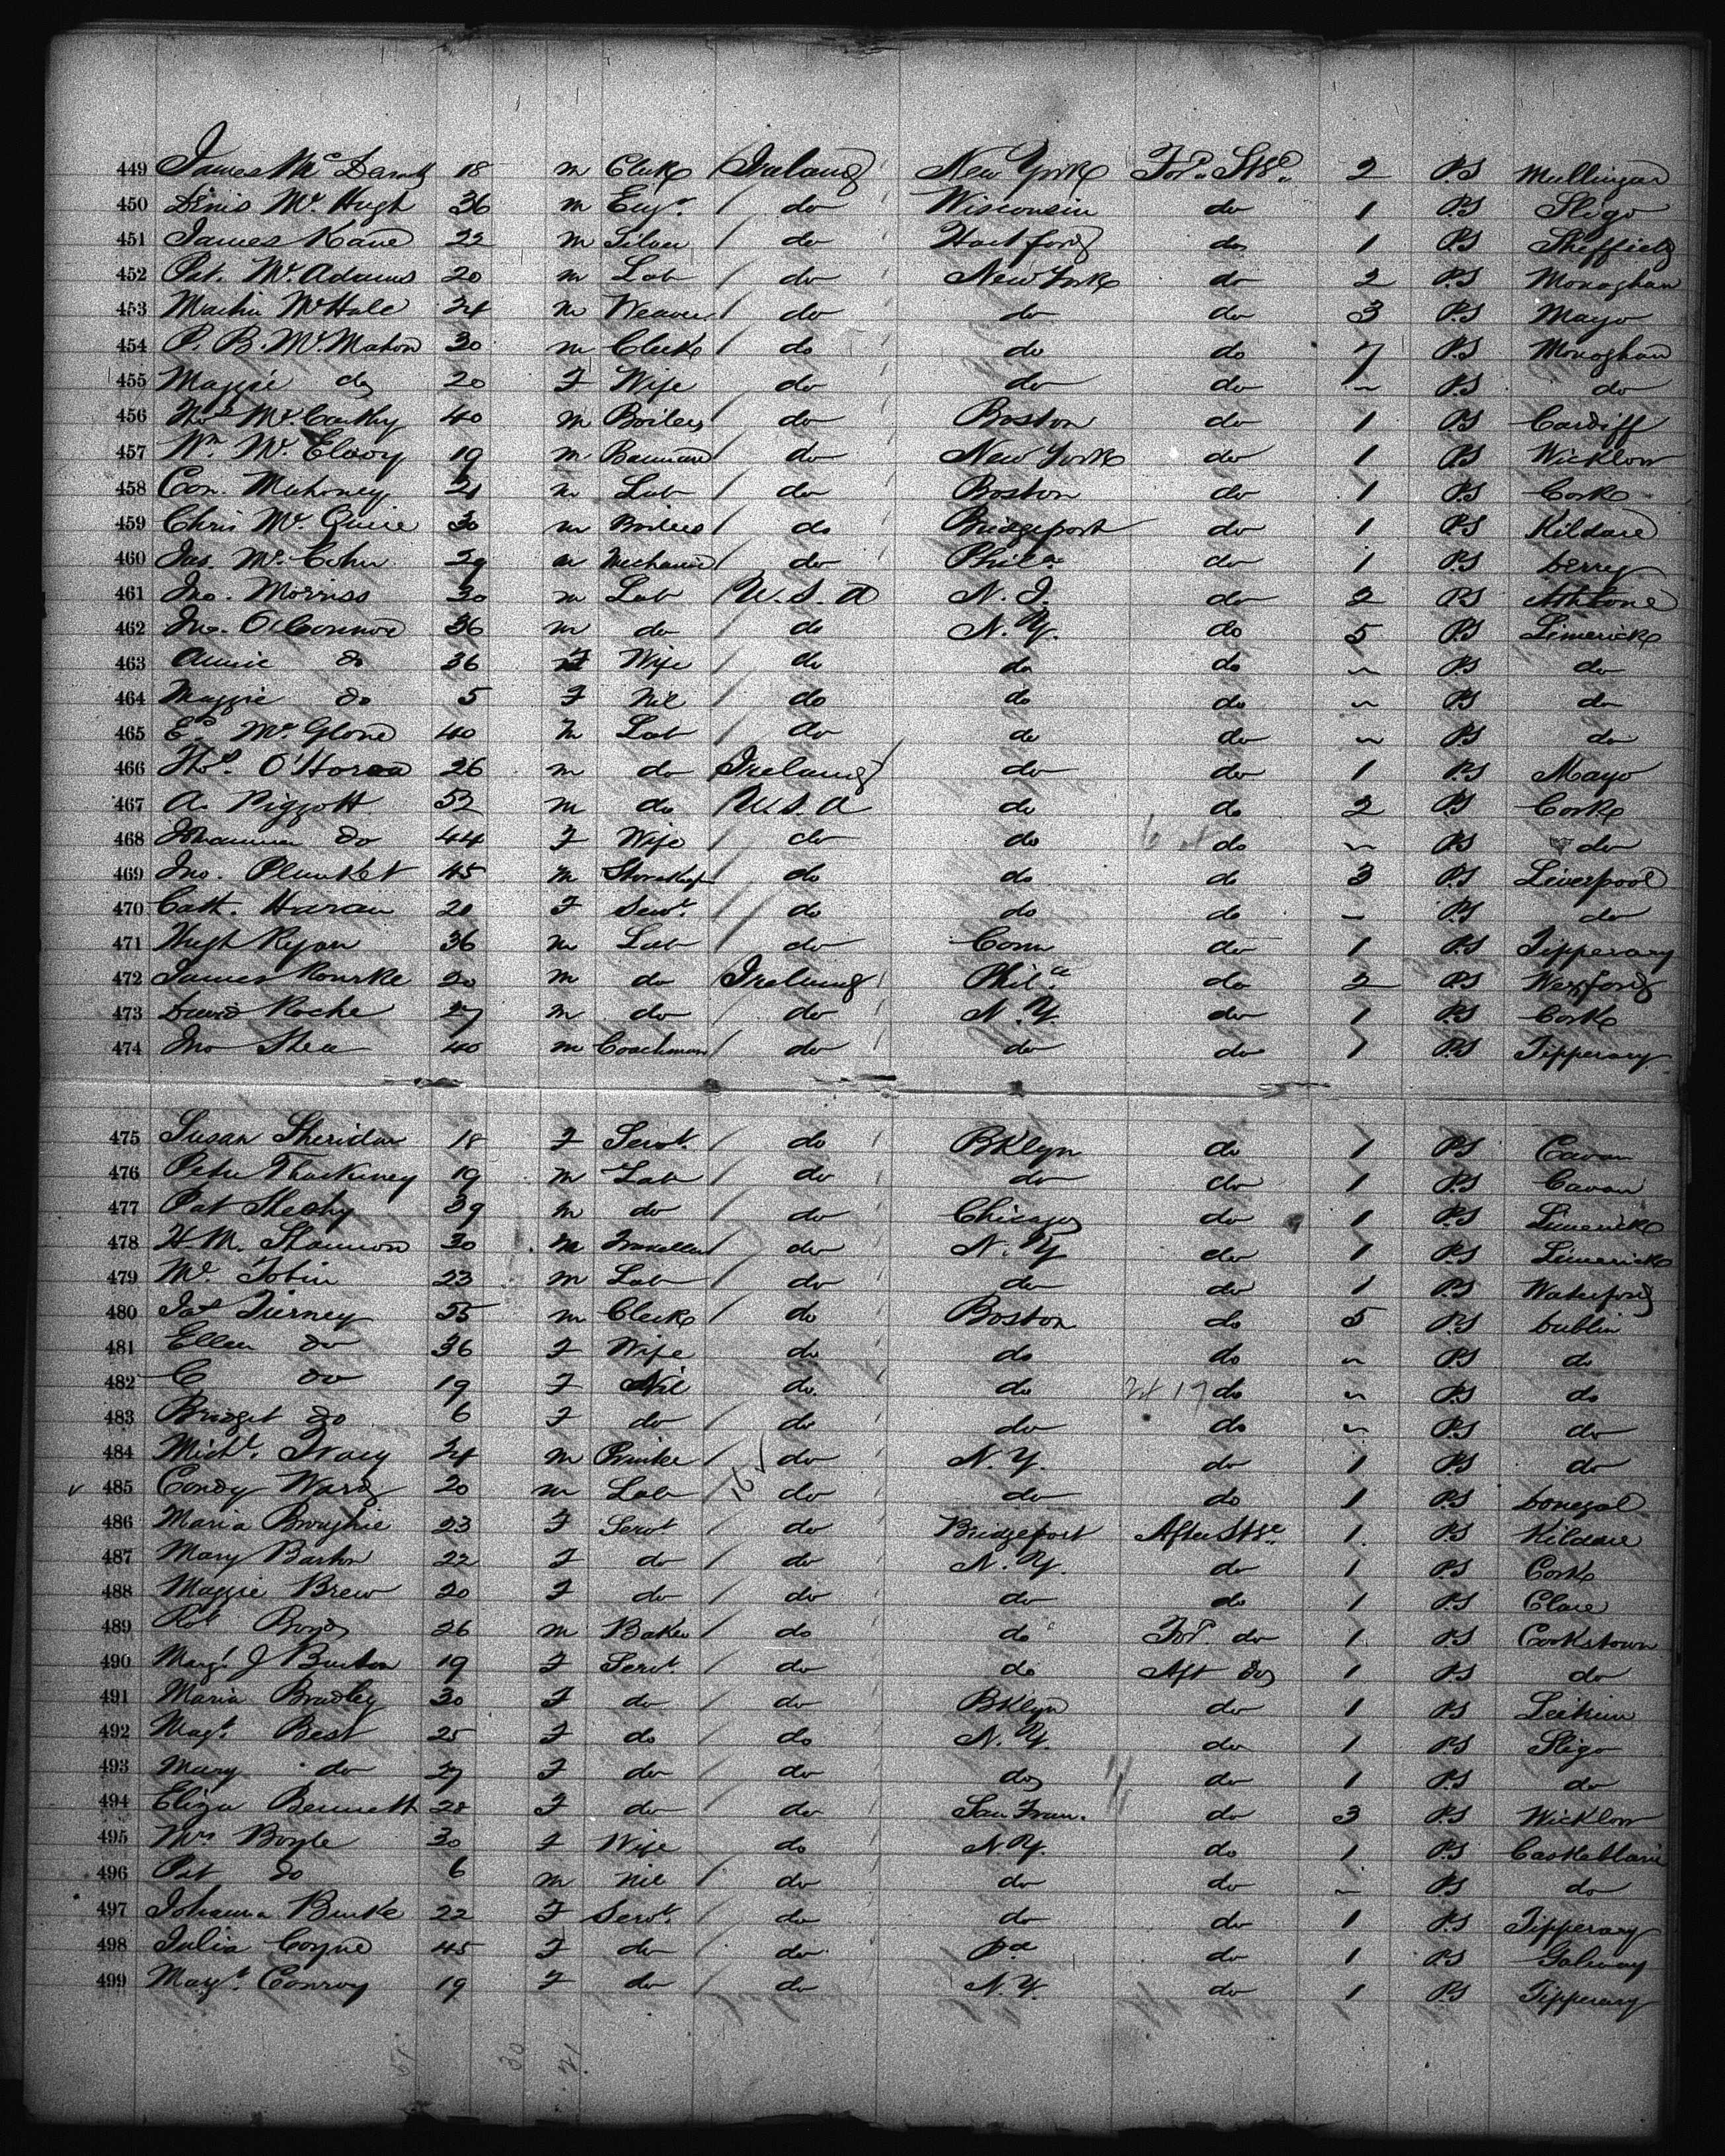 449 James Mc Dermott 18 m Clerk Ireland New York For'd Stge 2 P.S Mullingar
450 Dinis Mc Hugh 36 m Engr do Wisconsin do 1 P.S Sligo
451 James Kane 22 m Silver do Hartford do 1 P.S Sheffield
452 Pat. Mc Adams 20 m Lab do New York do 2 P.S Monaghan
453 Martin McHale 24 m Weaver do do do 3 P.S Mayo
454 P. B. Mc Mahon 30 m Clerk do do do 7 P.S Monaghan
455 Maggie do 20 F Wife do do do " P.S do
456 Thos Mc Carthy 40 m Boiler do Boston do 1 P.S Cardiff
457 Wm Mc Elroy 19 m do New York do 1 P.S Wicklow
458 Con. Mahoney 21 m Lab do Boston do 1 P.S Cork
459 Chris Mc Quire 30 m Boiler do Bridgeport do 1 P.S Kildare
460 Jas. Mc Cohn 29 m Mechanic do Phila do 1 P.S Derry
461 Jno. Morriss 30 m Lab U.S.A N.J. do 2 P.S Athlone
462 Jno. O'Connor 36 m do do N.Y. do 5 P.S Limerick
463 Annie do 36 F Wife do do do " P.S do
464 Maggie do 5 F Nil do do do " P.S do
465 Ed Mc Glone 40 m Lab do do do " P.S do
466 Thos. O'Horan 26 m do Ireland do do 1 P.S Mayo
467 A. Piggott 52 m do U.S.A do do 2 P.S Cork
468 Johanna do 44 F Wife do do do " P.S do
469 Jno. Plunket 45 m Storekeepr do do do 3 P.S Liverpool
470 Cath. Haran 20 F Servt. do do do " P.S do
471 Hugh Ryan 36 m Lab do Conn do 1 P.S Tipperary
472 James Rourke 20 m do Ireland Phila do 2 P.S Wexford
473 David Roche 27 m do do N.Y. do 1 P.S Cork
474 Jno Shea 40 m Coachman do do do 1 P.S Tipperary
475 Susan Sheridan 18 F Servt. do BKlyn do 1 P.S Cavan
476 Peter Thackney 19 m Lab do do do 1 P.S Cavan
477 Pat Sheehy 39 m do do Chicago do 1 P.S Limerick
478 H. M. Shannon 30 m Traveller do N.Y. do 1 P.S Limerick
479 Mc. Tobin 23 m Lab do do do 1 P.S Waterford
480 Jas Tierney 55 m Clerk do Boston do 5 P.S Dublin
481 Ellen do 36 F Wife do do do " P.S do
482 C do 19 F Nil do do do " P.S do
483 Bridget do 6 F do do do do " P.S do
484 Michl. Tracy 24 m Printer do N.Y. do 1 P.S do
485 Condy Ward 20 m Lab do do do 1 P.S Donegal
486 Maria Broughie 23 F Servt do Bridgeport After Stge 1 P.S Kildare
487 Mary Barton 22 F do do N.Y. do 1 P.S Cork
488 Maggie Brew 20 F do do do do 1 P.S Clare
489 Rot Boyd 26 m Baker do do For'd do 1 P.S Cookstown
490 Magt J Burton 19 F Servt. do do Aft do 1 P.S do
491 Maria Bradley 30 F do do BKlyn do 1 P.S Leitrim
492 Magt. Best 25 F do do N.Y. do 1 P.S Sligo
493 Mary do 27 F do do do do 1 P.S do
494 Eliza Bennett 28 F do do San Fran. do 3 P.S Wicklow
495 Mrs Boyle 30 F Wife do N.Y. do 1 P.S Castleblane
496 Pat do 6 m nil do do do " P.S do
497 Johanna Burke 22 F Servt. do do do 1 P.S Tipperary
498 Julia Coyne 45 F do do Pa do 1 P.S Galway
499 Magt. Conroy 19 F do do N.Y. do 1 P.S Tipperary